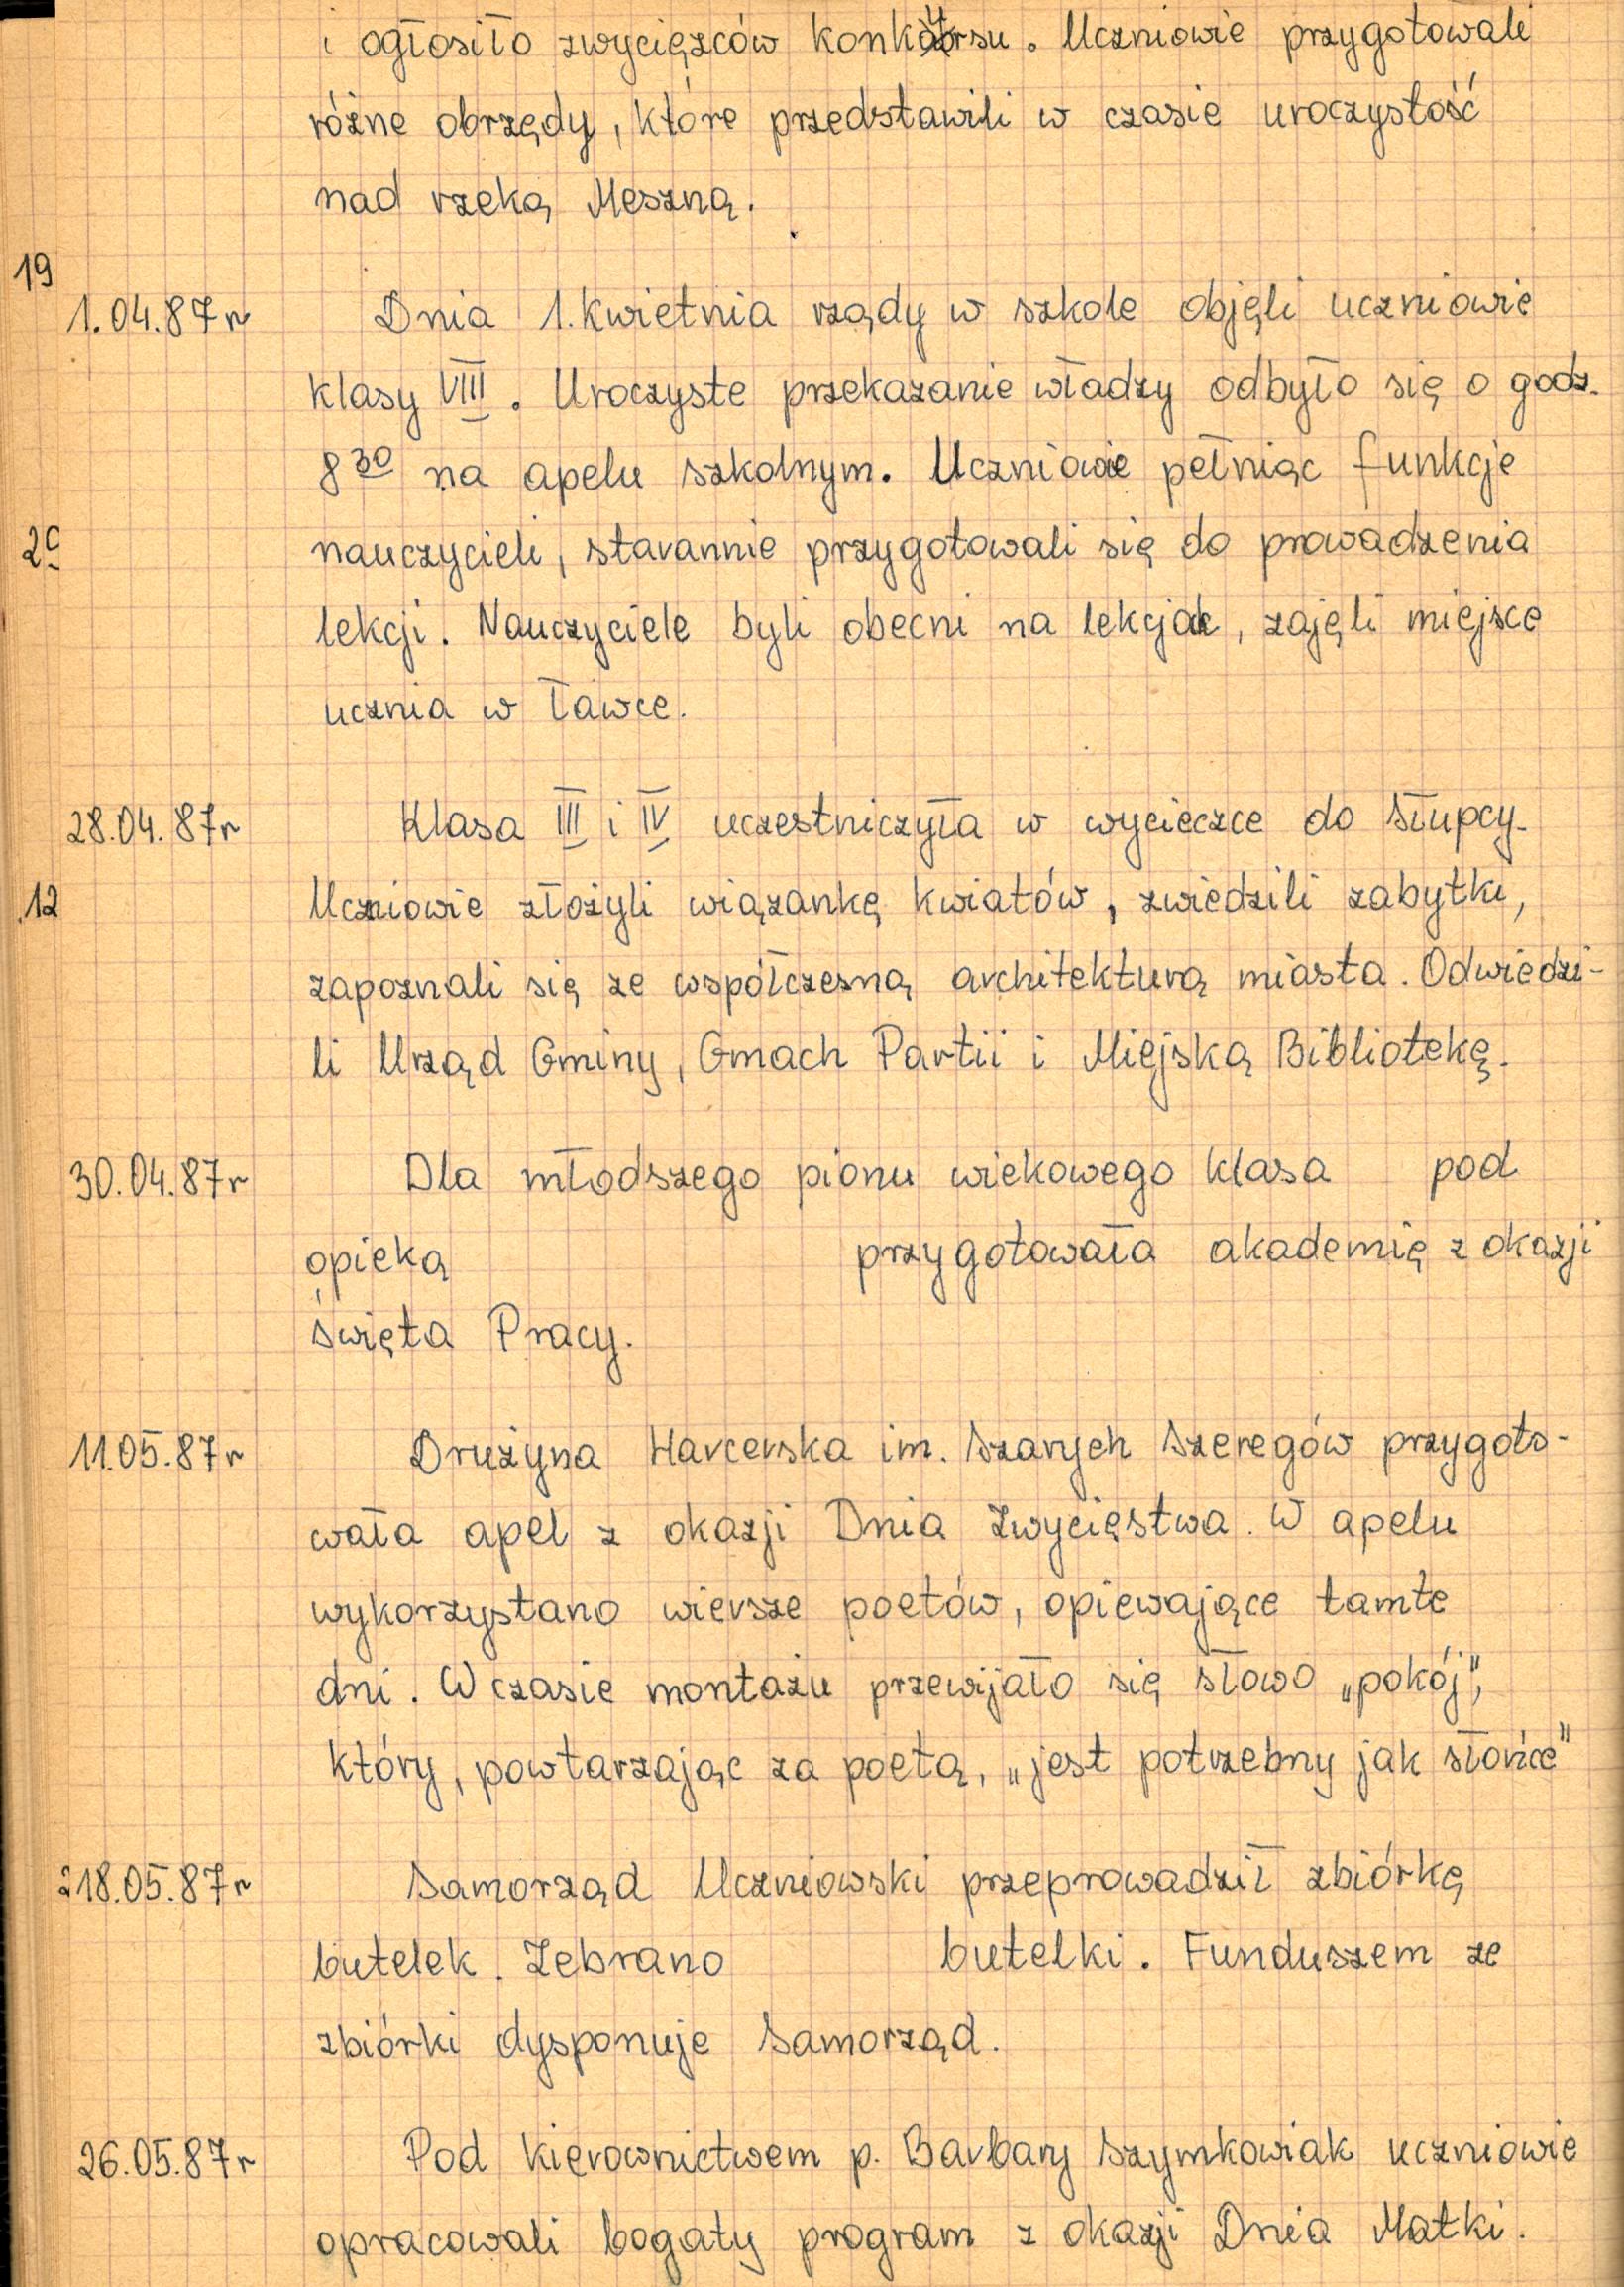 i ogłosiło zwycięzców konkursu. Uczniowie przygotowali
różne obrzędy, które przedstawili w czasie uroczystość
nad rzeką Meszną.
19
1.04.87r Dnia 1. kwietnia rządy w szkole objęli uczniowie
klasy VIII. Uroczyste przekazanie władzy odbyło się o godz.
8 30 na apelu szkolnym. Uczniowie pełniąc funkcje
nauczycieli, starannie przygotowali się do prowadzenia
lekcji. Nauczyciele byli obecni na, zajęli miejsce
ucznia w ławce.
28.04.87r Klasa III i IV uczestniczyła w wycieczce do Słupcy.
12 Uczniowie złożyli wiązankę kwiatów, zwiedzili zabytki,
zapoznali się ze współczesną architekturą miasta. Odwiedzi-
li Urząd Gminy, Gmach Partii i Miejską Bibliotekę.
30.04.87r Dla młodszego pionu wiekowego klasa pod
opieką przygotowała akademię z okazji
święta Pracy.
11.05.87r Drużyna Harcerska im. Szarych Szeregów przygoto-
wała apel z okazji Dnia Zwycięstwa. W apelu
wykorzystano wiersze poetów, opiewające tamte
dni. W czasie montażu przewijało się słowo „pokój",
który, powtarzając za poetą, „jest potrzebny jak słońce"
18.05.87r Samorząd Uczniowski przeprowadził zbiórkę
butelek. Zebrano butelki. Funduszem ze
zbiórki dysponuje Samorząd.
26.05.87r Pod kierownictwem p. Barbary Szymkowiak uczniowie
opracowali bogaty program z okazji Dnia Matki.